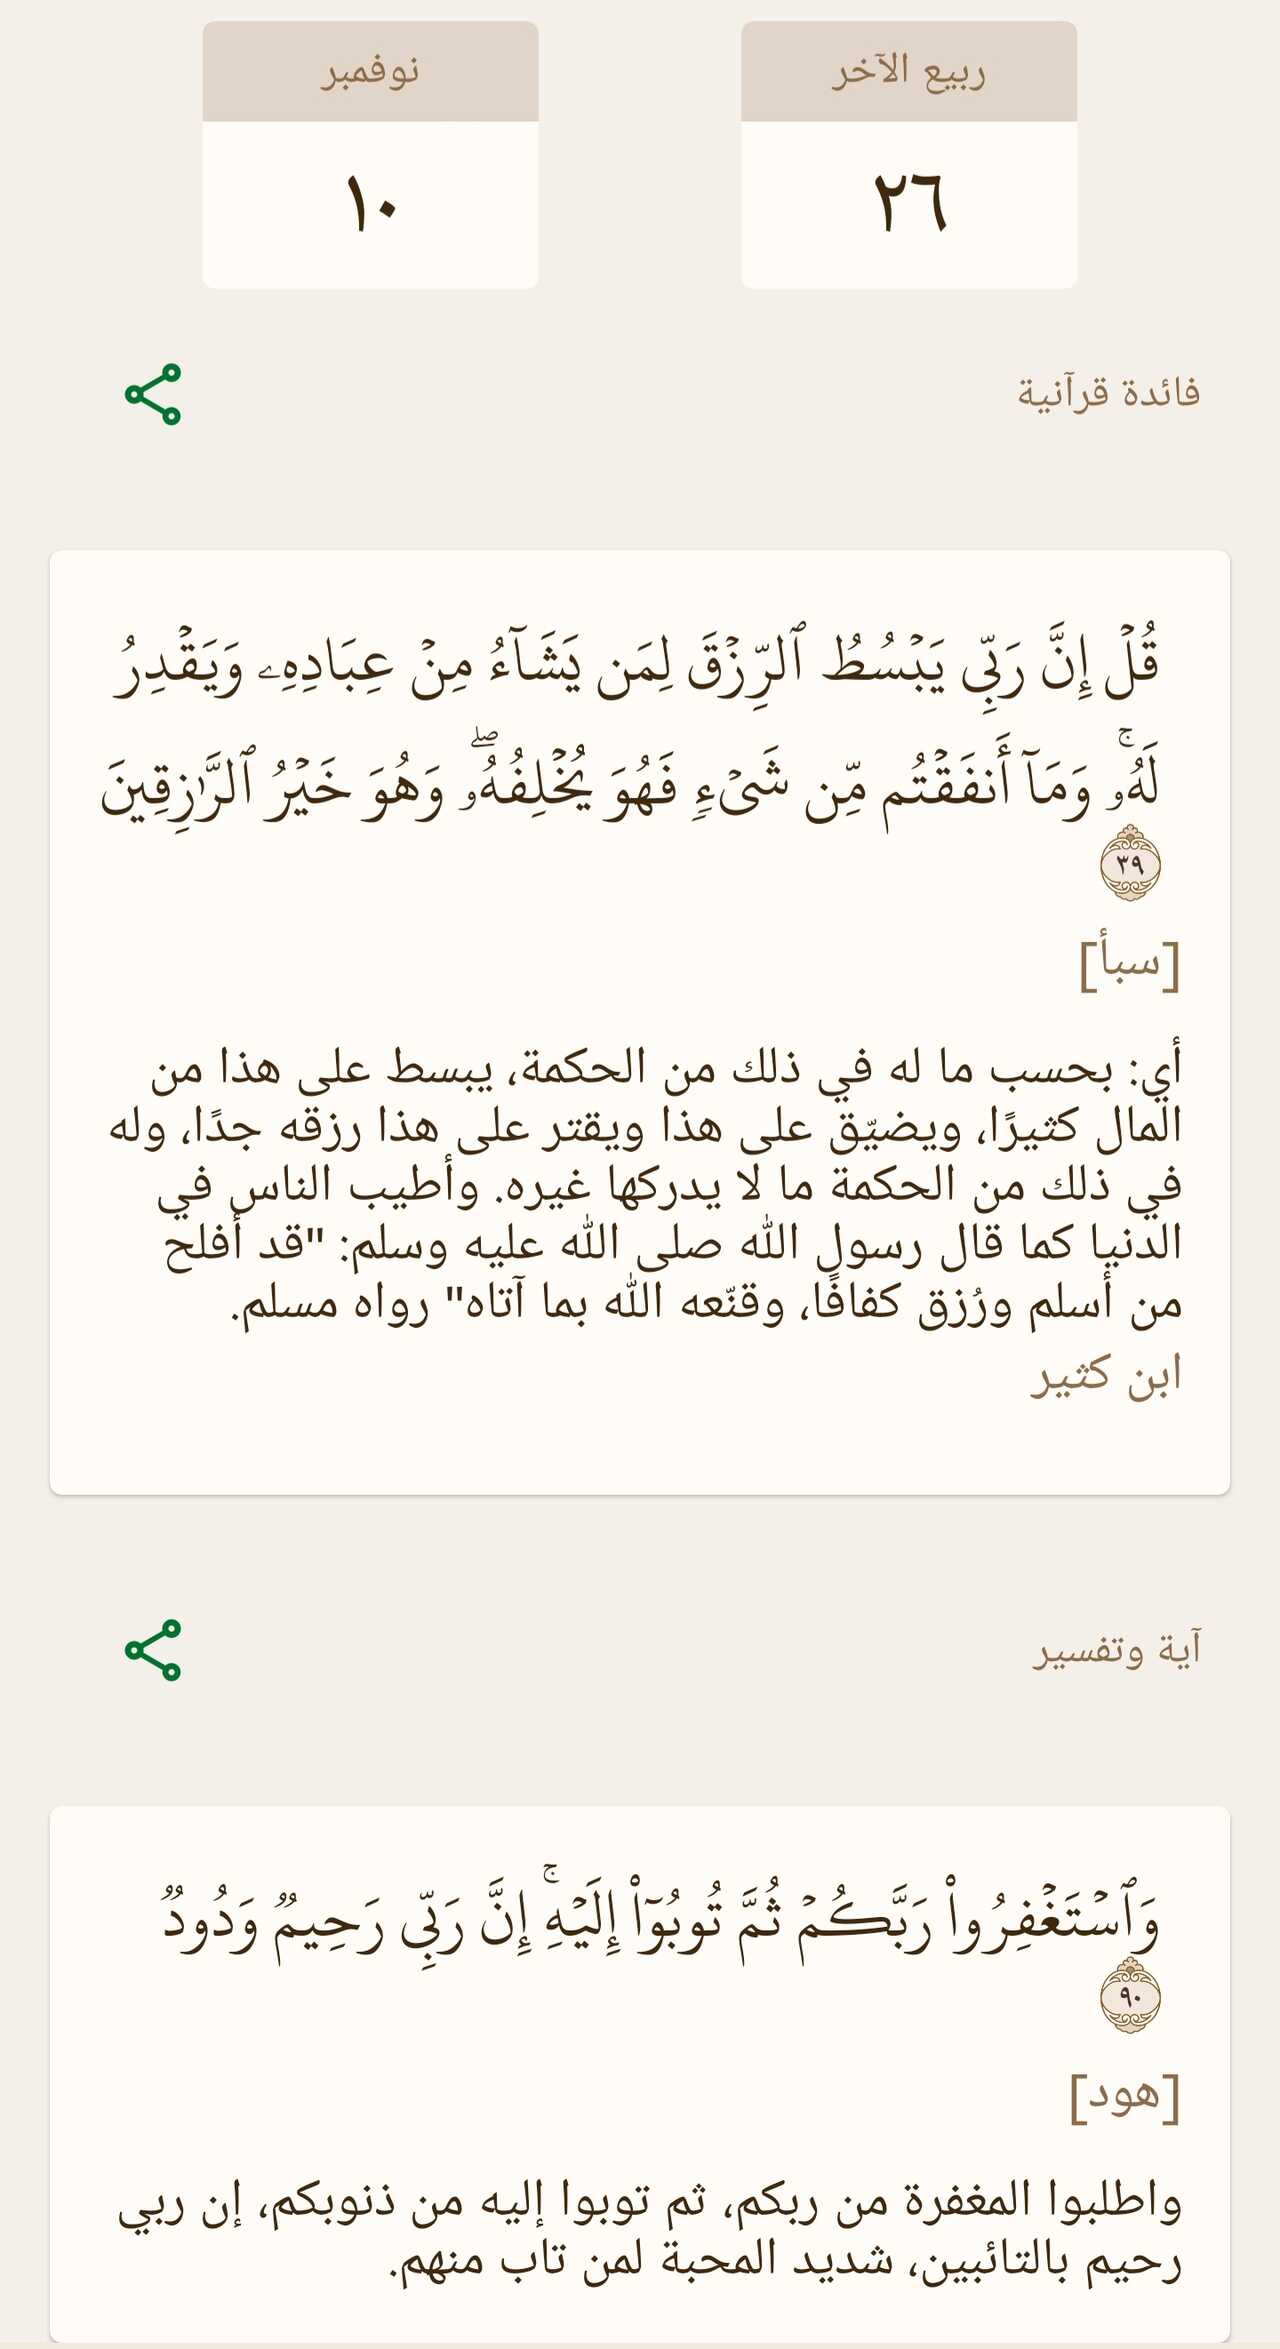 ربيع الآخر
نوفمبر
٢٦
١٠
فائدة قرآنية
قُلۡ إِنَّ رَبِّي يَبۡسُطُ ٱلرِّزۡقَ لِمَن يَشَآءُ مِنۡ عِبَادِهِۦ وَيَقۡدِرُ
لَهُۥۚ وَمَآ أَنفَقۡتُم مِّن شَيۡءٖ فَهُوَ يُخۡلِفُهُۥۖ وَهُوَ خَيۡرُ ٱلرَّٰزِقِينَ
٣٩
[سبأ]
أي: بحسب ما له في ذلك من الحكمة، يبسط على هذا من
المال كثيرًا، ويضيّق على هذا ويقتر على هذا رزقه جدًا، وله
في ذلك من الحكمة ما لا يدركها غيره. وأطيب الناس في
الدنيا كما قال رسول الله صلى الله عليه وسلم: "قد أفلح
من أسلم ورُزق كفافًا، وقنّعه الله بما آتاه" رواه مسلم.
ابن كثير
آية وتفسير
وَٱسۡتَغۡفِرُواْ رَبَّكُمۡ ثُمَّ تُوبُوٓاْ إِلَيۡهِۚ إِنَّ رَبِّي رَحِيمٞ وَدُودٞ
٩٠
[هود]
واطلبوا المغفرة من ربكم، ثم توبوا إليه من ذنوبكم، إن ربي
رحيم بالتائبين، شديد المحبة لمن تاب منهم.